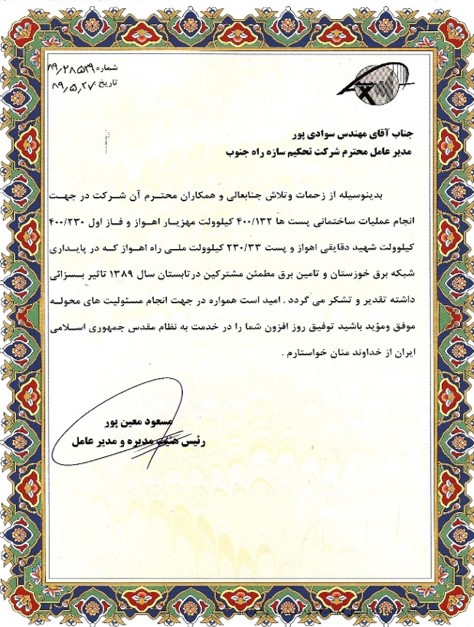 شماره: ۸۹٫۲۸۵۲۹
تاریخ: ۸۹٫۵٫۲۷
جناب آقای مهندس سوادی پور
مدیر عامل محترم شرکت تحکیم سازه راه جنوب
بدینوسیله از زحمات وتلاش جنابعالی و همکاران محترم آن شرکت در جهت
انجام عملیات ساختمانی پست ها ۴۰۰/۱۳۲ کیلوولت مهزیار اهواز و فاز اول ۴۰۰/۲۳۰
کیلوولت شهید دقایقی اهواز و پست ۲۳۰/۳۳ کیلوولت ملی راه اهواز که در پایداری
شبکه برق خوزستان و تامین برق مطمئن مشترکین درتابستان سال ۱۳۸۹ تاثیر بسزائی
داشته تقدیر و تشکر می گردد . امید است همواره در جهت انجام مسئولیت های محوله
موفق ومؤید باشید توفیق روز افزون شما را در خدمت به نظام مقدس جمهوری اسلامی
ایران از خداوند منان خواستارم .
مسعود معین پور
رئیس هیئت مدیره و مدیر عامل